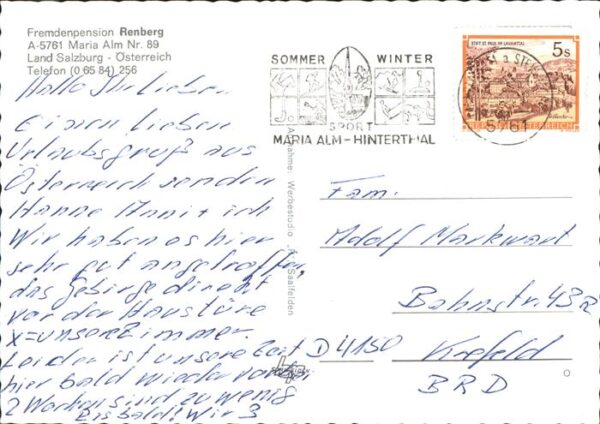 Fremdenpension Renberg
A-5761 Maria Alm Nr. 89
Land Salzburg - Österreich
Telefon (0 65 84) 256
Hallo Ihr Lieben
Einen lieben
Urlaubsgruß aus
Österreich senden
Hanne Anni + ich
Wir haben es hier
sehr gut angetroffen,
das Gebirge direckt
vor der Haustüre
x=unser Zimmer.
Leider ist unsere Zeit
hier bald wieder vorbei
2 Wochen sind zu wenig
Bis bald! Wir 3
SOMMER WINTER
SPORT
MARIA ALM-HINTERTHAL
STIFT ST. PAUL IM LAVANTTAL
5s
REPUBLIK ÖSTERREICH
5761
Aufnahme: Werbestudio Saalfelden
Fam.
Adolf Markwart
Bahnstr. 43a
D 4150 Krefeld
BRD